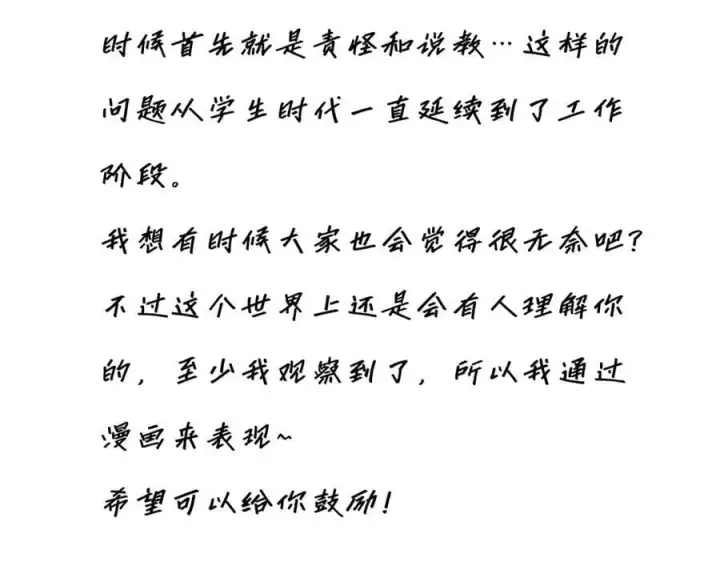 时候首先就是责怪和说教…这样的
问题从学生时代一直延续到了工作
阶段。
我想有时候大家也会觉得很无奈吧?
不过这个世界上还是会有人理解你
的，至少我观察到了，所以我通过
漫画来表现~
希望可以给你鼓励!